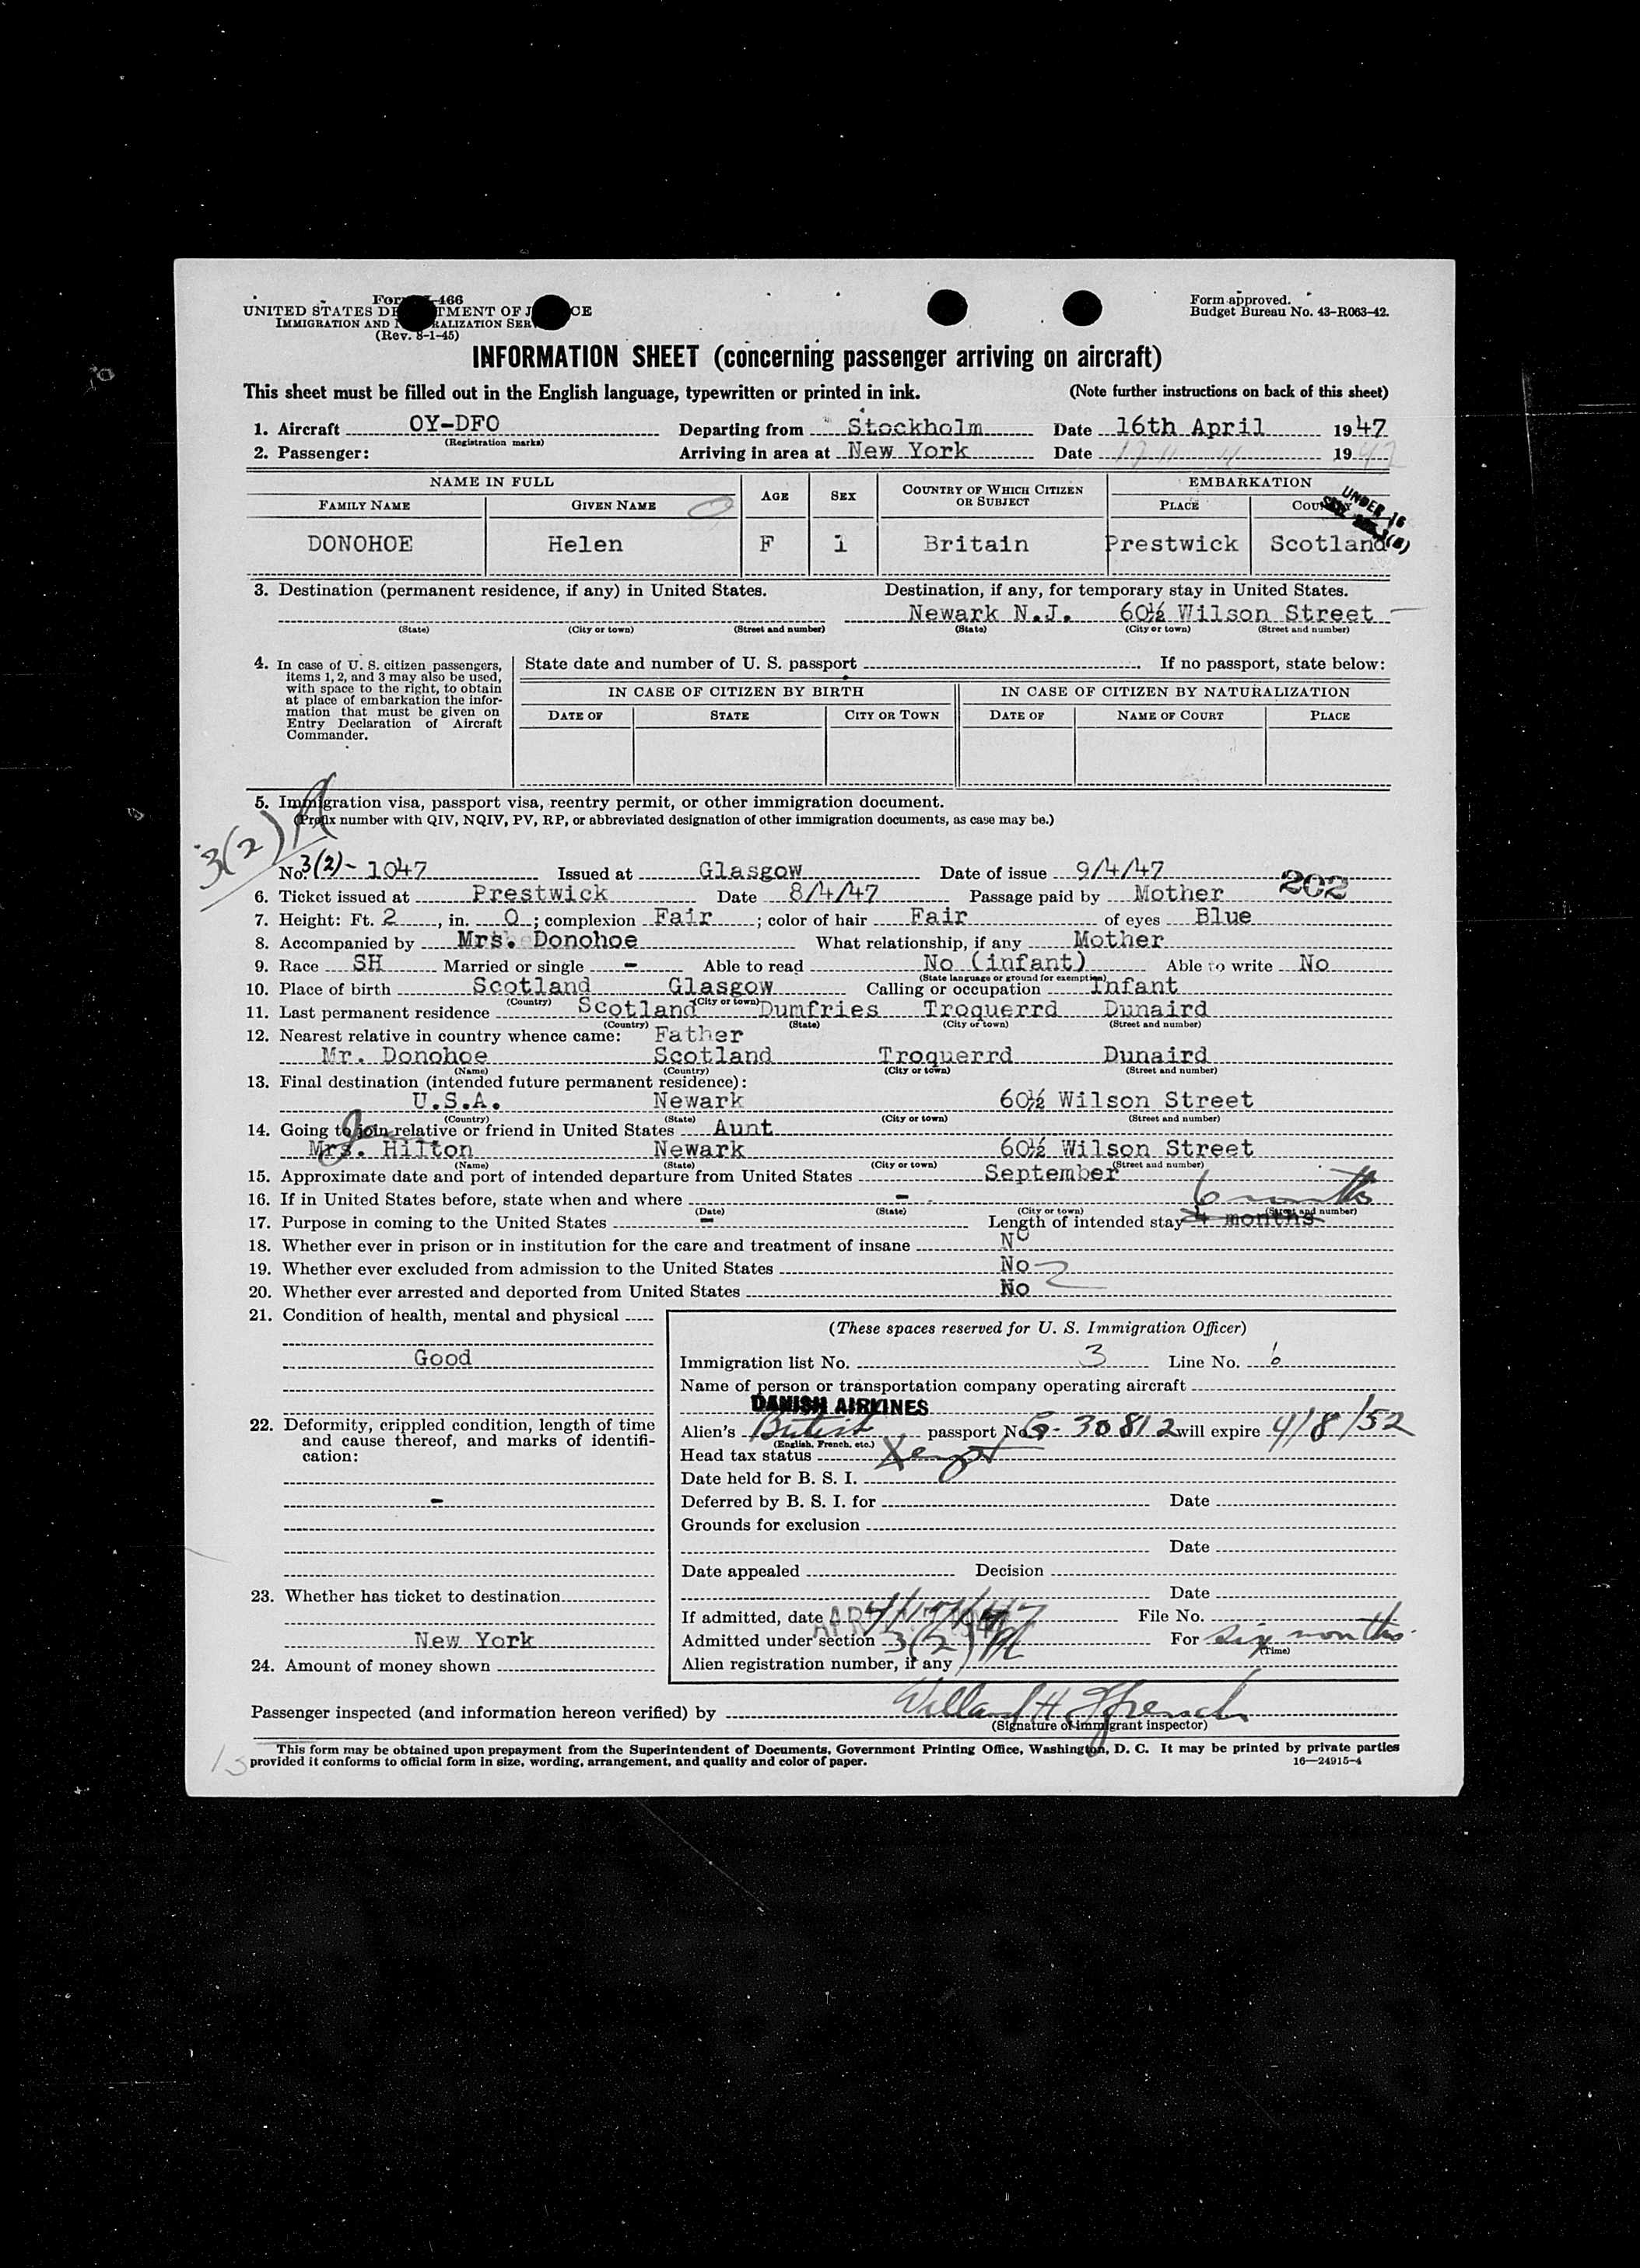 Form 466
UNITED STATES DE TMENT OF J CE
IMMIGRATION AND RALIZATION SER
(Rev. 8-1-45)
Form approved.
Budget Bureau No. 43-R063-42.
INFORMATION SHEET (concerning passenger arriving on aircraft)
This sheet must be filled out in the English language, typewritten or printed in ink. (Note further instructions on back of this sheet)
1. Aircraft OY-DFO Departing from Stockholm Date 16th April 1947
(Registration marks)
2. Passenger: Arriving in area at New York Date 17 " " 1947
NAME IN FULL AGE SEX COUNTRY OF WHICH CITIZEN OR SUBJECT EMBARKATION
FAMILY NAME GIVEN NAME PLACE COUNTRY
UNDER 16
DONOHOE Helen F 1 Britain Prestwick Scotland
3. Destination (permanent residence, if any) in United States. Destination, if any, for temporary stay in United States.
Newark N.J. 60½ Wilson Street
(State) (City or town) (Street and number) (State) (City or town) (Street and number)
4. In case of U. S. citizen passengers, items 1, 2, and 3 may also be used, with space to the right, to obtain at place of embarkation the information that must be given on Entry Declaration of Aircraft Commander.
State date and number of U. S. passport If no passport, state below:
IN CASE OF CITIZEN BY BIRTH IN CASE OF CITIZEN BY NATURALIZATION
DATE OF STATE CITY OR TOWN DATE OF NAME OF COURT PLACE
5. Immigration visa, passport visa, reentry permit, or other immigration document.
(Prefix number with QIV, NQIV, PV, RP, or abbreviated designation of other immigration documents, as case may be.)
3(2)
No. 3(2)- 1047 Issued at Glasgow Date of issue 9/4/47
6. Ticket issued at Prestwick Date 8/4/47 Passage paid by Mother 202
7. Height: Ft. 2, in. 0; complexion Fair; color of hair Fair of eyes Blue
8. Accompanied by Mrs. Donohoe What relationship, if any Mother
9. Race SH Married or single - Able to read No (infant) Able to write No
(State language or ground for exemption)
10. Place of birth Scotland Glasgow Calling or occupation Infant
(Country) (City or town)
11. Last permanent residence Scotland Dumfries Troquerrd Dunaird
(Country) (State) (City or town) (Street and number)
12. Nearest relative in country whence came: Father
Mr. Donohoe Scotland Troquerrd Dunaird
(Name) (Country) (City or town) (Street and number)
13. Final destination (intended future permanent residence):
U.S.A. Newark 60½ Wilson Street
(Country) (State) (City or town) (Street and number)
14. Going to join relative or friend in United States Aunt
Mrs. Hilton Newark 60½ Wilson Street
(Name) (State) (City or town) (Street and number)
15. Approximate date and port of intended departure from United States September
16. If in United States before, state when and where - 6 months
(Date) (State) (City or town) (Street and number)
17. Purpose in coming to the United States - Length of intended stay 4 months
18. Whether ever in prison or in institution for the care and treatment of insane No
19. Whether ever excluded from admission to the United States No
20. Whether ever arrested and deported from United States No
21. Condition of health, mental and physical
Good
22. Deformity, crippled condition, length of time and cause thereof, and marks of identification:
-
23. Whether has ticket to destination
New York
24. Amount of money shown
(These spaces reserved for U. S. Immigration Officer)
Immigration list No. 3 Line No. 6
Name of person or transportation company operating aircraft
DANISH AIRLINES
Alien's British passport No. G-30812 will expire 4/8/52
(English, French, etc.)
Head tax status Xempt
Date held for B. S. I.
Deferred by B. S. I. for Date
Grounds for exclusion
Date
Date appealed Decision
Date
If admitted, date 4/17/47 File No.
Admitted under section 3(2) For six months
(Time)
Alien registration number, if any
Passenger inspected (and information hereon verified) by Willard H.
(Signature of immigrant inspector)
13
This form may be obtained upon prepayment from the Superintendent of Documents, Government Printing Office, Washington, D. C. It may be printed by private parties
provided it conforms to official form in size, wording, arrangement, and quality and color of paper. 16—24915-4